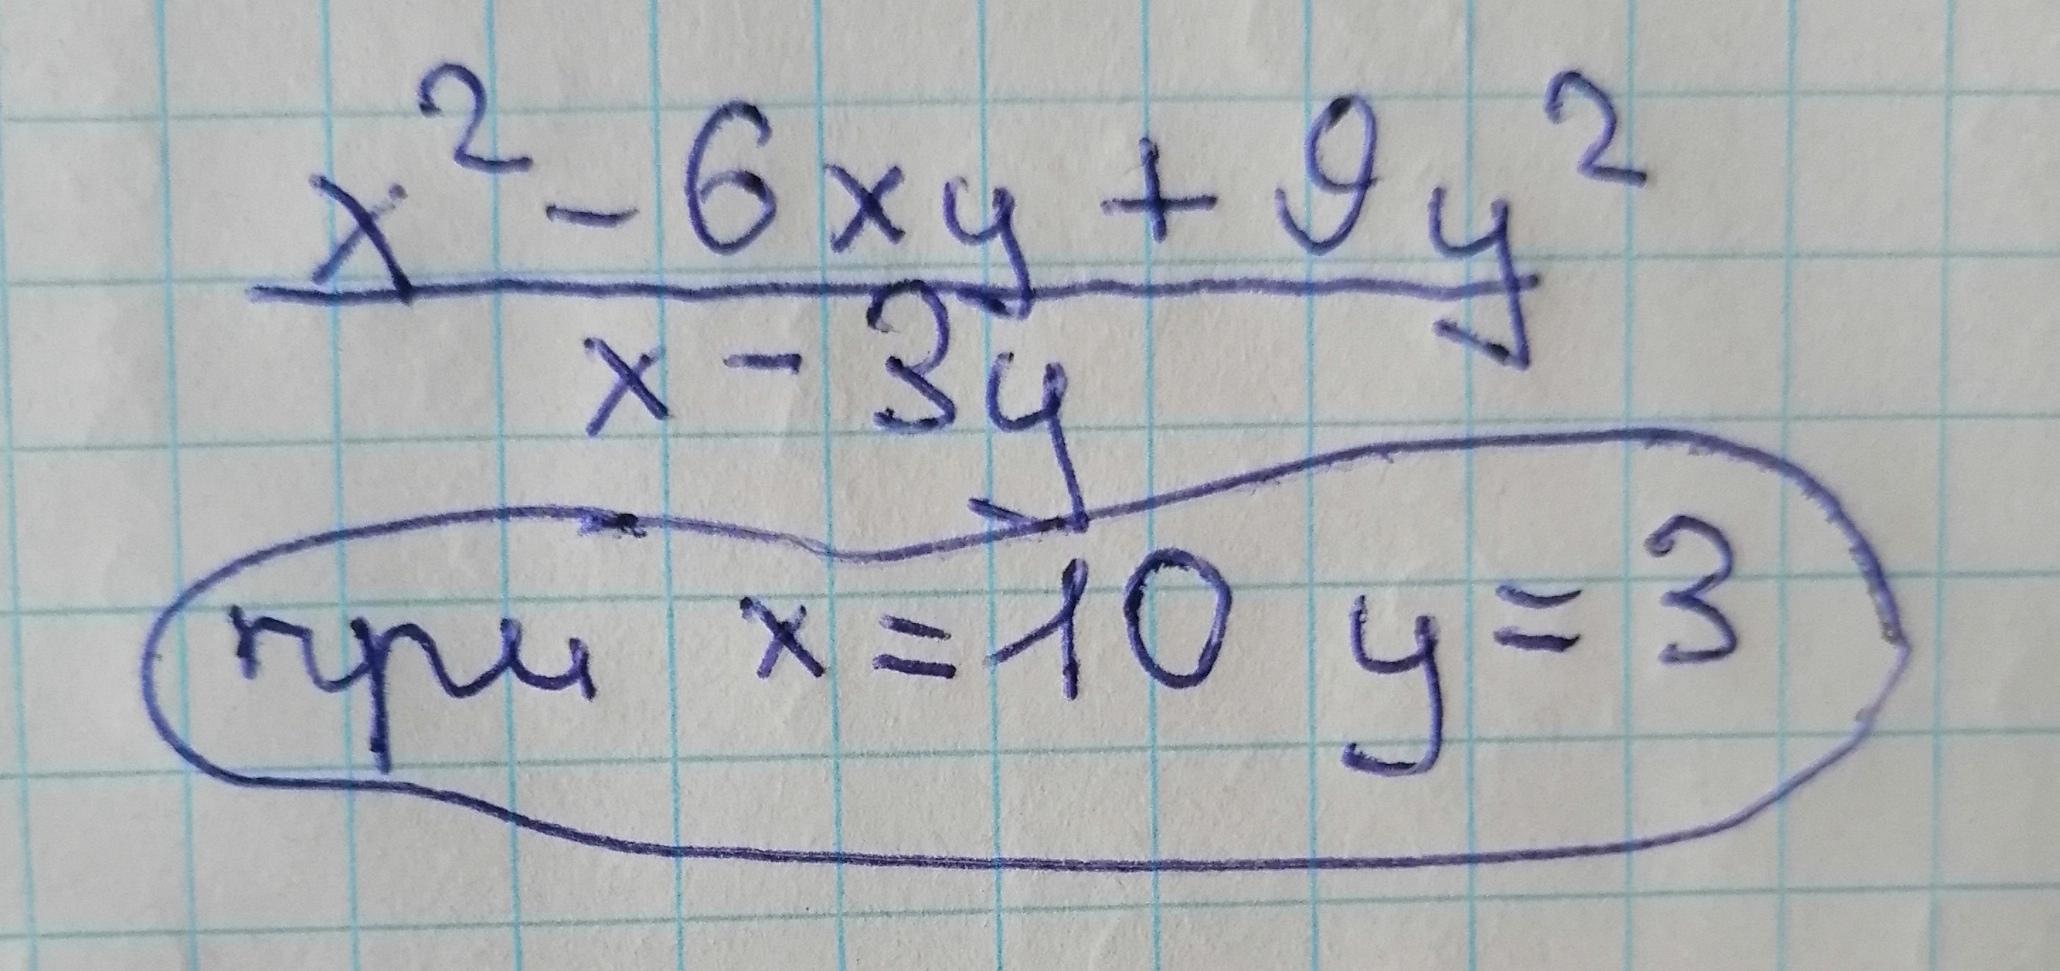 x² - 6xy + 9y²
x - 3y
при x = 10 y = 3